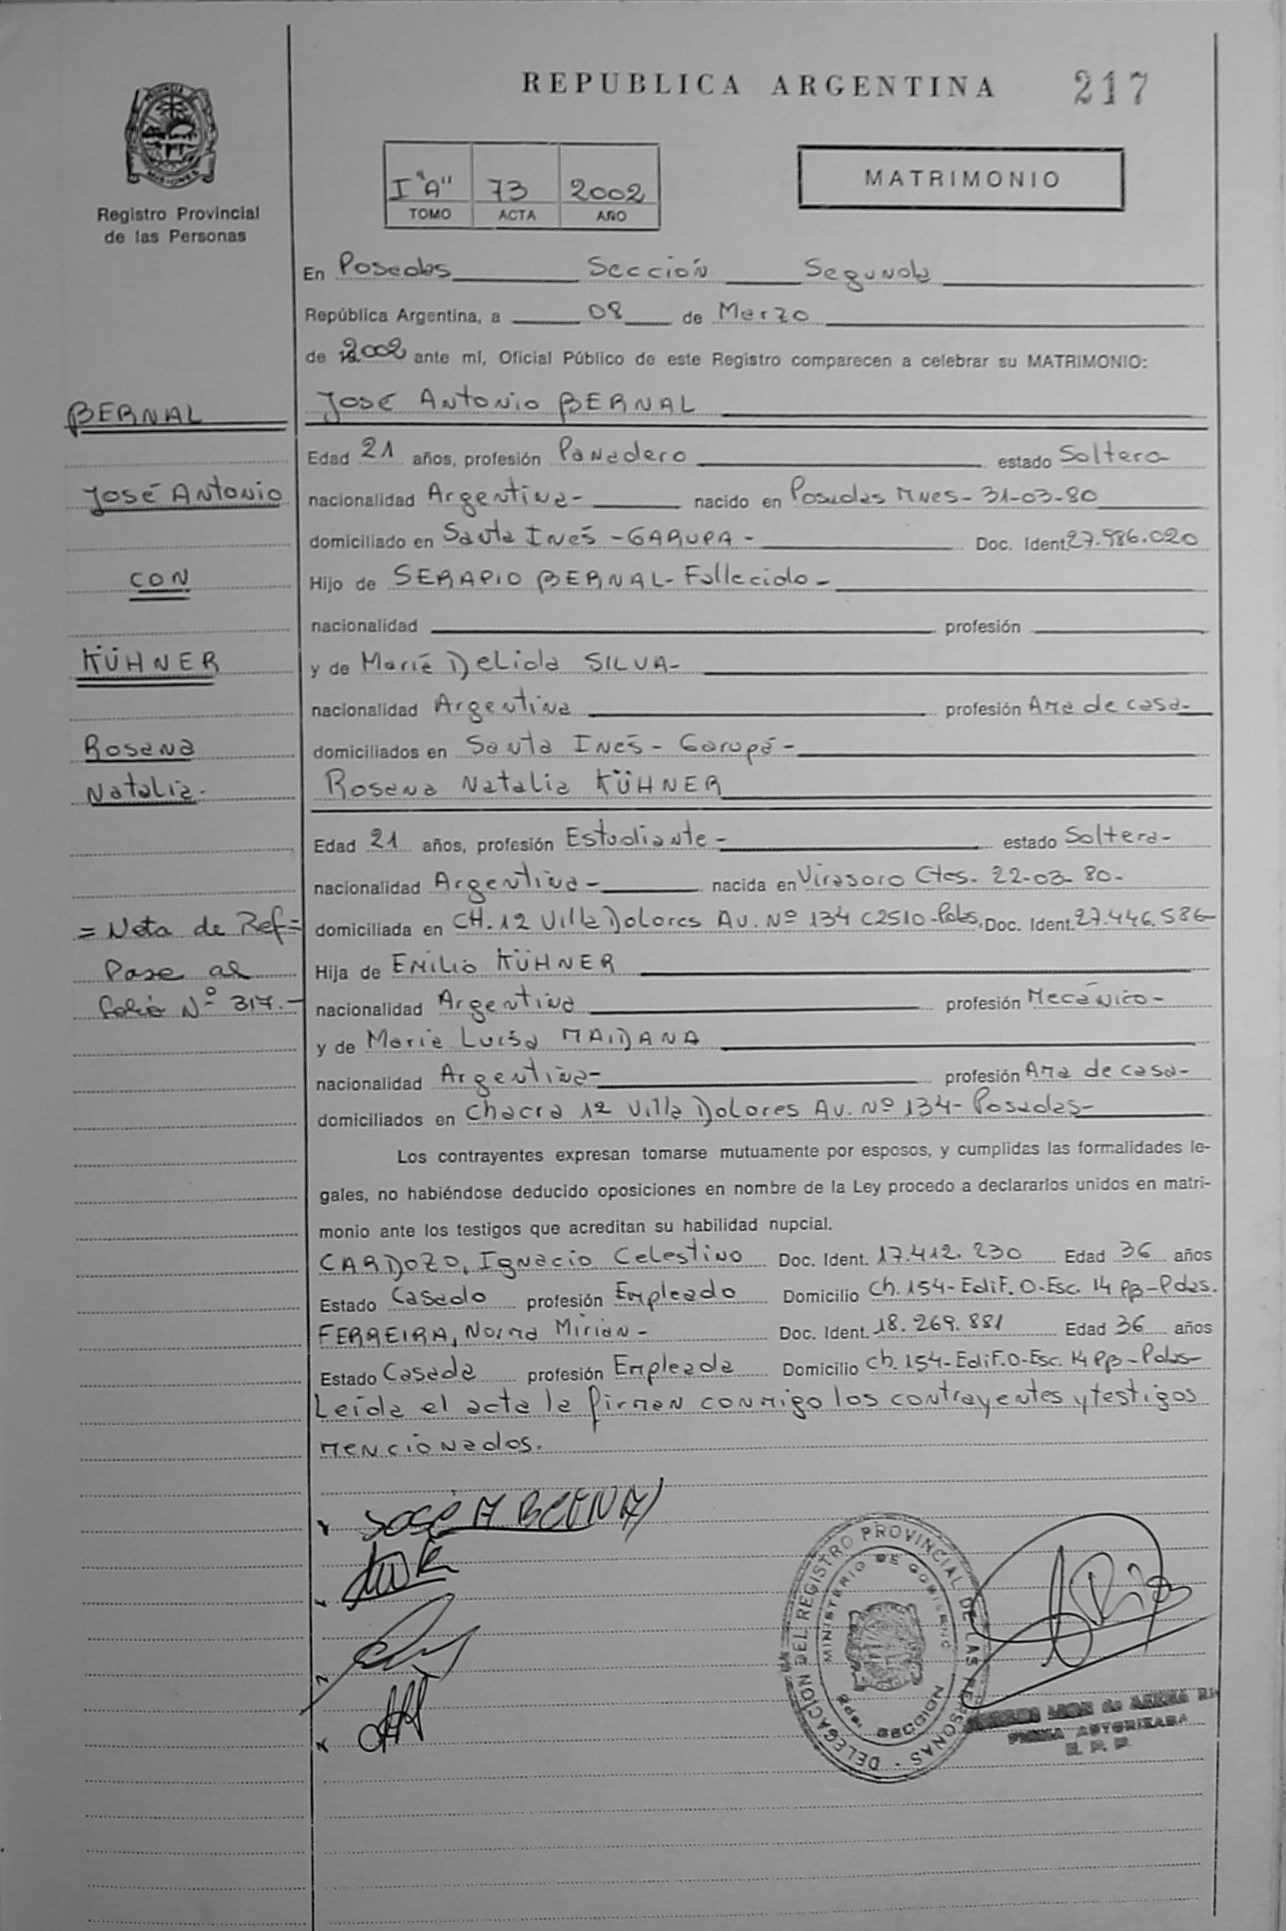 REPUBLICA ARGENTINA 217
MISIONES
Registro Provincial
de las Personas
I "A" 73 2002
TOMO ACTA AÑO
MATRIMONIO
En Posadas Sección Segunda
República Argentina, a 08 de Marzo
de 2002 ante mí, Oficial Público de este Registro comparecen a celebrar su MATRIMONIO:
José Antonio BERNAL
Edad 21 años, profesión Panadero estado Soltero
nacionalidad Argentina- nacido en Posadas Mnes- 31-03-80
domiciliado en Santa Inés -GARUPA- Doc. Ident. 27.986.020
Hijo de SERAPIO BERNAL- Fallecido-
nacionalidad profesión
y de María Delida SILVA-
nacionalidad Argentina profesión Ama de casa-
domiciliados en Santa Inés- Garupá-
Rosana Natalia KÜHNER
Edad 21 años, profesión Estudiante- estado Soltera-
nacionalidad Argentina- nacida en Virasoro Ctes- 22-03-80-
domiciliada en CH. 12 Villa Dolores Av. Nº 134 C2510-Pdas. Doc. Ident. 27.446.586-
Hija de EMILIO KÜHNER
nacionalidad Argentina profesión Mecánico-
y de María Luisa MAIDANA
nacionalidad Argentina- profesión Ama de casa-
domiciliados en Chacra 12 Villa Dolores Av. Nº 134- Posadas-
Los contrayentes expresan tomarse mutuamente por esposos, y cumplidas las formalidades le-
gales, no habiéndose deducido oposiciones en nombre de la Ley procedo a declararlos unidos en matri-
monio ante los testigos que acreditan su habilidad nupcial.
CARDOZO, Ignacio Celestino Doc. Ident. 17.412.230 Edad 36 años
Estado Casado profesión Empleado Domicilio Ch. 154- Edif. O-Esc. 14 PB-Pdas.
FERREIRA, Norma Mirian- Doc. Ident. 18.269.881 Edad 36 años
Estado Casada profesión Empleada Domicilio Ch. 154- Edif. O-Esc. 14 PB-Pdas-
Leída el acta la firman conmigo los contrayentes y testigos
mencionados.
BERNAL
José Antonio
CON
KÜHNER
Rosana
Natalia-
= Nota de Ref=
Pase al
folio Nº 317.-
JOSÉ A BERNAL
DELEGACION DEL REGISTRO PROVINCIAL DE LAS PERSONAS
MINISTERIO DE GOBIERNO
2da. SECCION
FIRMA AUTORIZADA
R. P. P.